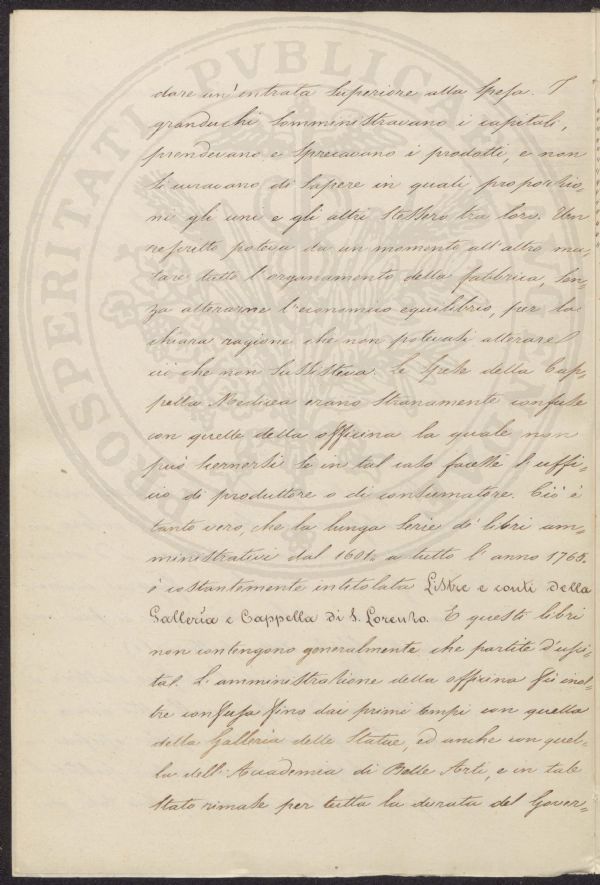 dare un'entrata superiore alla spesa. I
granduchi somministravano i capitali,
prendevano e sprecavano i prodotti, e non
si curavano di sapere in quali proporzio=
ni gli uni e gli altri stessero tra loro. Un
rescritto poteva da un momento all'altro mu=
tare tutto l'organamento della fabbrica, sen=
za alterarne l'economico equilibrio, per la
chiara ragione che non potevasi alterare
ciò che non sussisteva. Le spese della Cap=
pella Medicea erano stranamente confuse
con quelle della officina la quale non
può scernersi se in tal caso facesse l'uffi=
cio di produttore o di consumatore. Ciò è
tanto vero, che la lunga serie de' libri am=
ministrativi dal 1601. a tutto l'anno 1765.
è costantemente intitolata Listre e conti della
Galleria e Cappella di S. Lorenzo. E questi libri
non contengono generalmente che partite d'usci=
ta. L'amministrazione della officina fù inol=
tre confusa fino dai primi tempi con quella
della Galleria delle Statue, ed anche con quel=
la dell'Accademia di Belle Arti, e in tale
stato rimase per tutta la durata del Gover=
PROSPERITATI PVBLICAE AVGENDAE